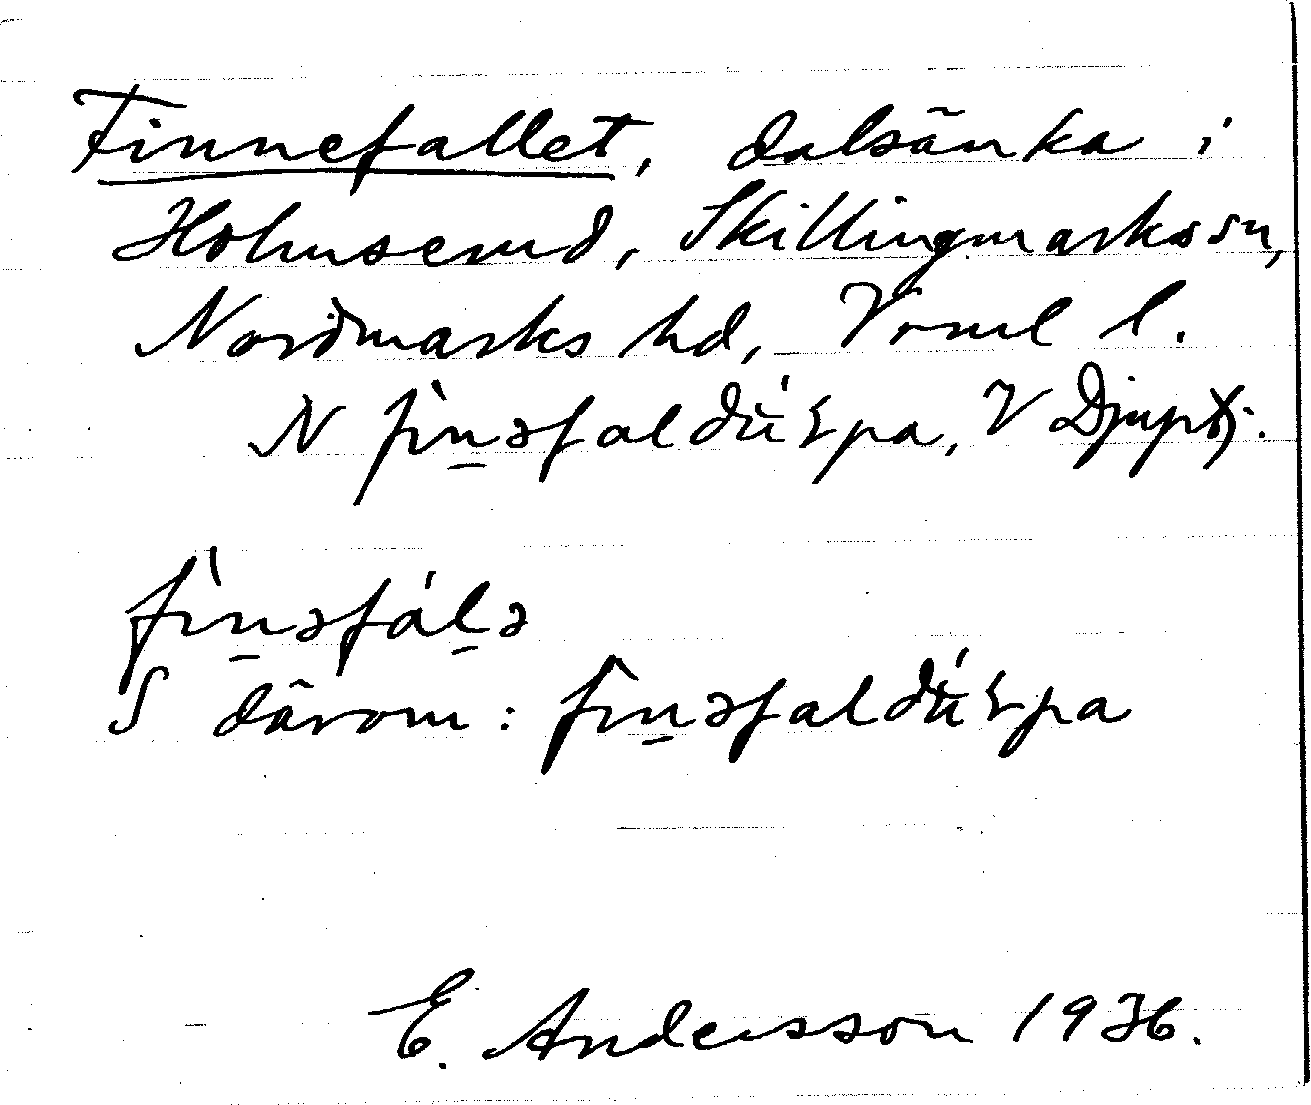 Finnefallet, dalsänka i
Holmserud, Skillingmarks sn,
Nordmarks hd, Vrml l.
N fìn̠əfaldʉ́ɽpa, V Djuptj.
fìn̠əfál̠ə
S därom: fìn̠əfaldʉ́ɽpa
E. Andersson 1936.